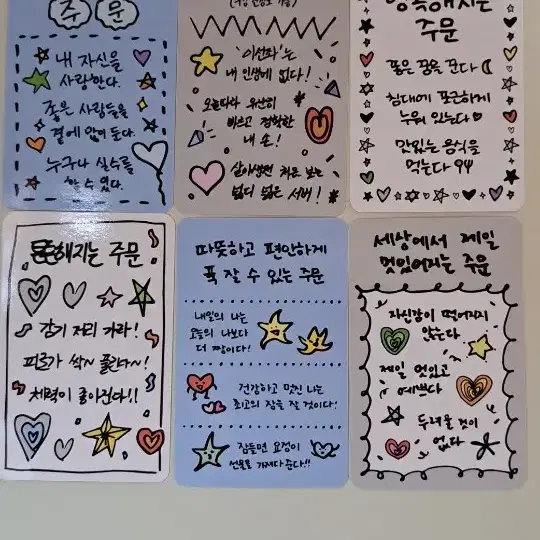 주문
내 자신을
사랑한다.
좋은 사람들을
곁에 많이 둔다.
누구나 실수를
할 수 있다.
'이선좌'는
내 인생에 없다!
오늘따라 유난히
빠르고 정확한
내 손!
살아생전 처음 보는
넓디 넓은 서버!
해지는
주문
좋은 꿈을 꾼다
침대에 포근하게
누워 있는다
맛있는 음식을
먹는다
해지는 주문
감기 저리 가라!
피로가 싹~ 풀린다~!
체력이 좋아진다!!
따뜻하고 편안하게
푹 잘 수 있는 주문
내일의 나는
오늘의 나보다
더 짱이다!
건강하고 멋진 나는
최고의 잠을 잘 것이다!
잠들면 요정이
선물을 가져다 준다!!
세상에서 제일
멋있어지는 주문
자신감이 떨어지지
않는다
제일 멋있고
예쁘다
두려울 것이
없다